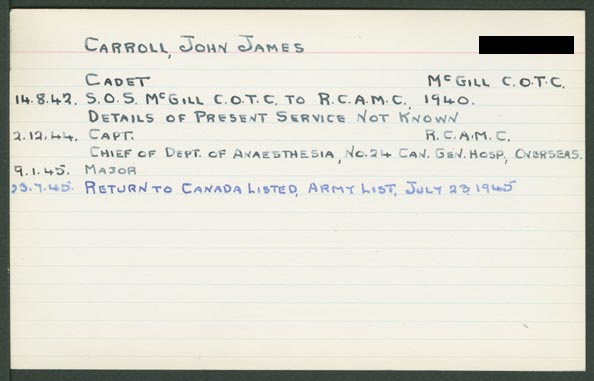 CARROLL, JOHN JAMES
CADET McGILL C.O.T.C.
14.8.42. S.O.S. McGILL C.O.T.C. TO R.C.A.M.C. 1940.
DETAILS OF PRESENT SERVICE NOT KNOWN
2.12.44. CAPT. R.C.A.M.C.
CHIEF OF DEPT. OF ANAESTHESIA, NO. 24 CAN. GEN. HOSP., OVERSEAS.
9.1.45. MAJOR
23.7.45. RETURN TO CANADA LISTED, ARMY LIST, JULY 23, 1945